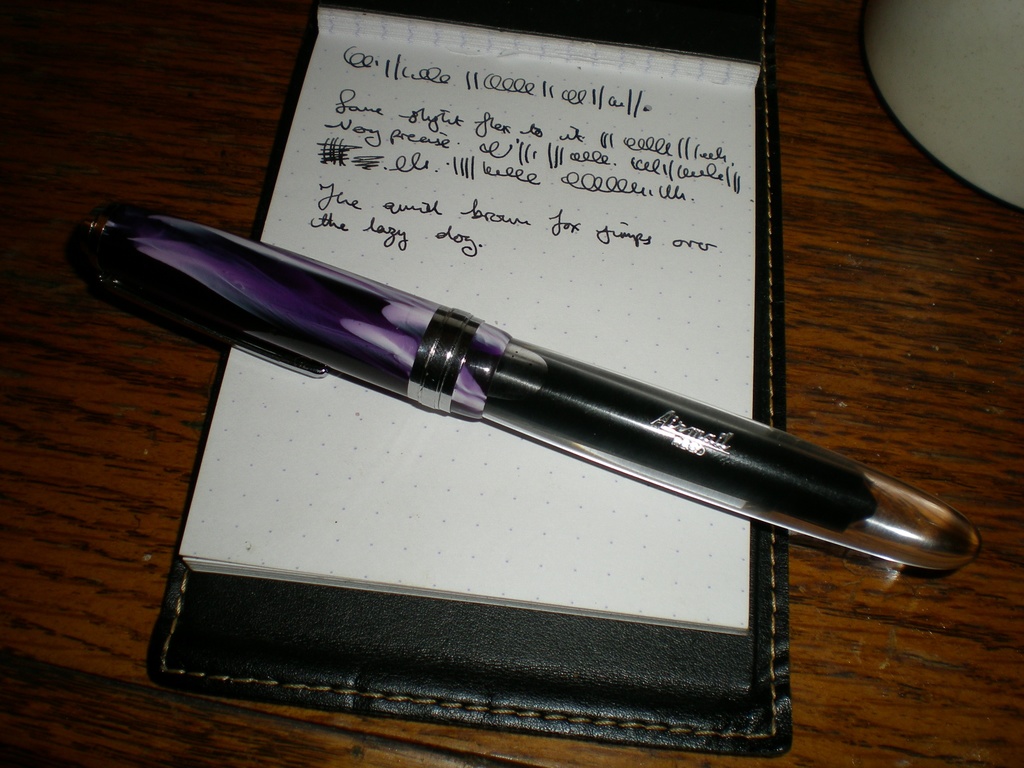 Some slight flex to it.
Very precise.
The quick brown fox jumps over
the lazy dog.
Airmail